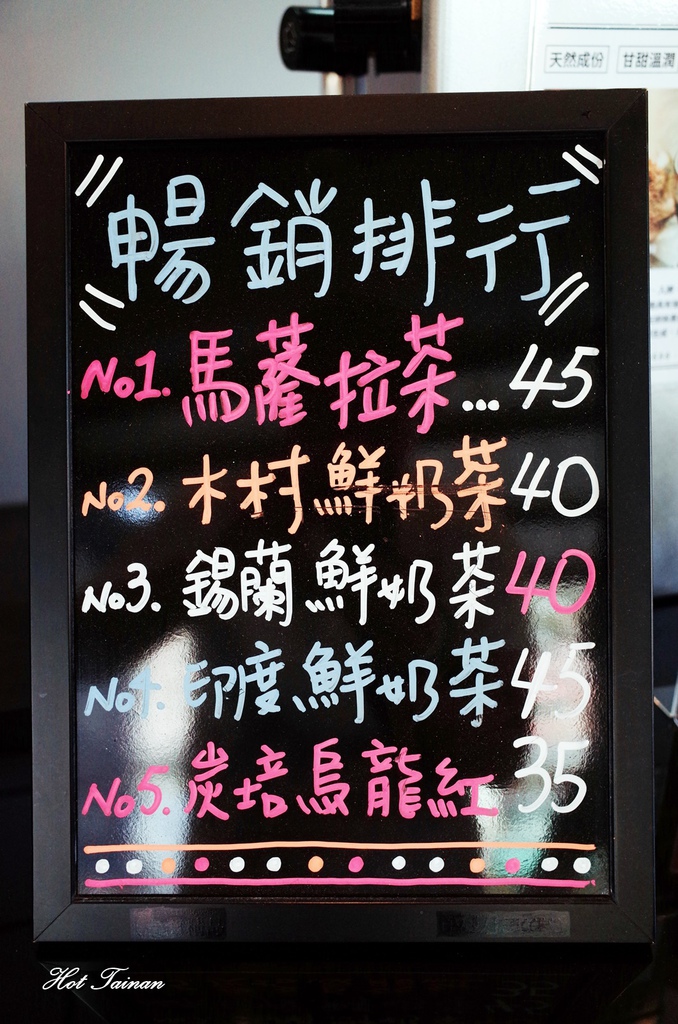 天然成份 甘甜溫潤
暢銷排行
No1. 馬薩拉茶... 45
No2. 木村鮮奶茶 40
No3. 錫蘭鮮奶茶 40
No4. 印度鮮奶茶 45
No5. 炭培烏龍紅 35
Hot Tainan